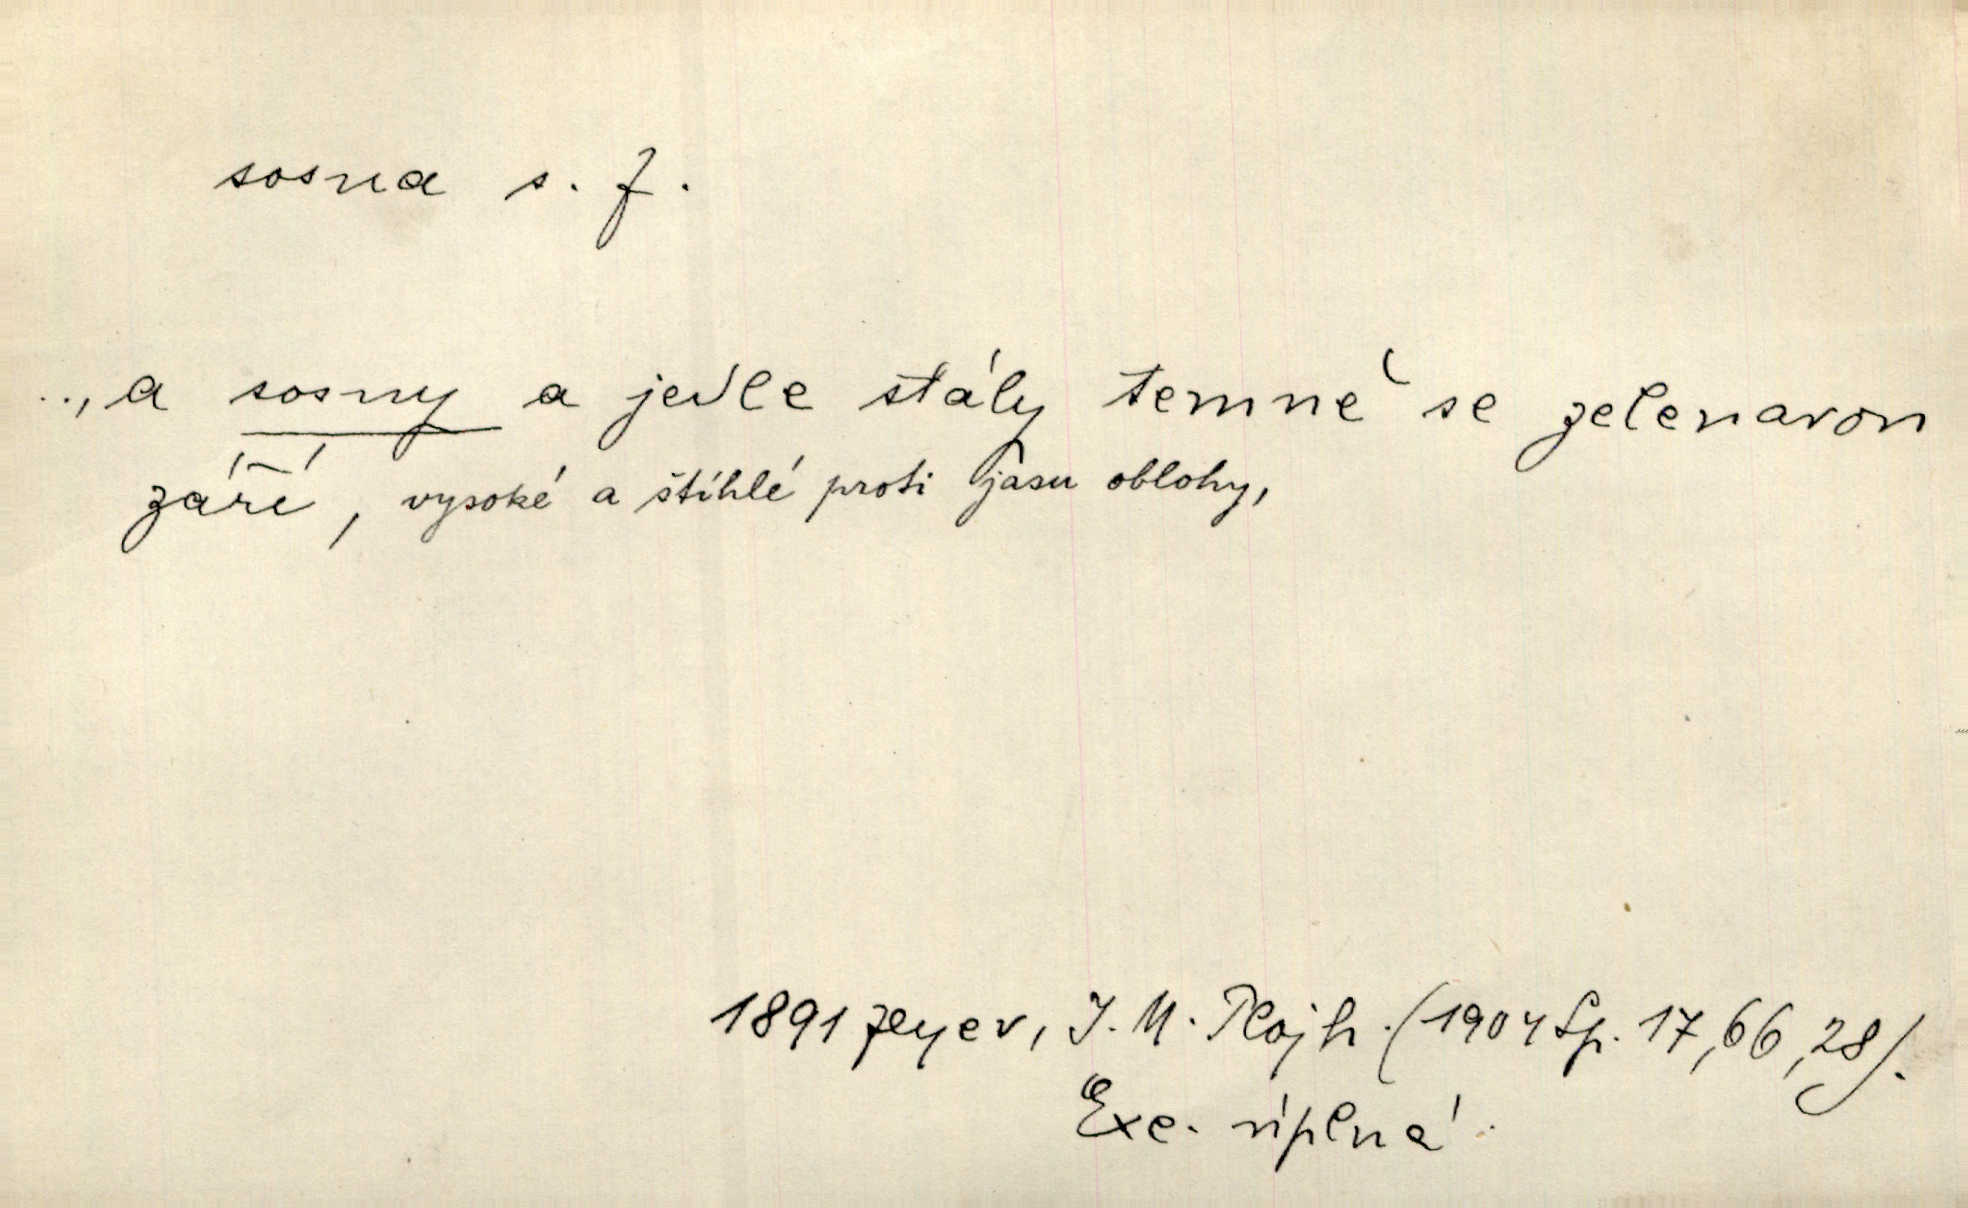 sosna s. f.
.., a sosny a jedle stály temně se zelenavou
září, vysoké a štíhlé proti jasu oblohy,
1891 Zeyer, J. M. Plojh. (1904 Sp. 17, 66, 28).
Exc. úplná.